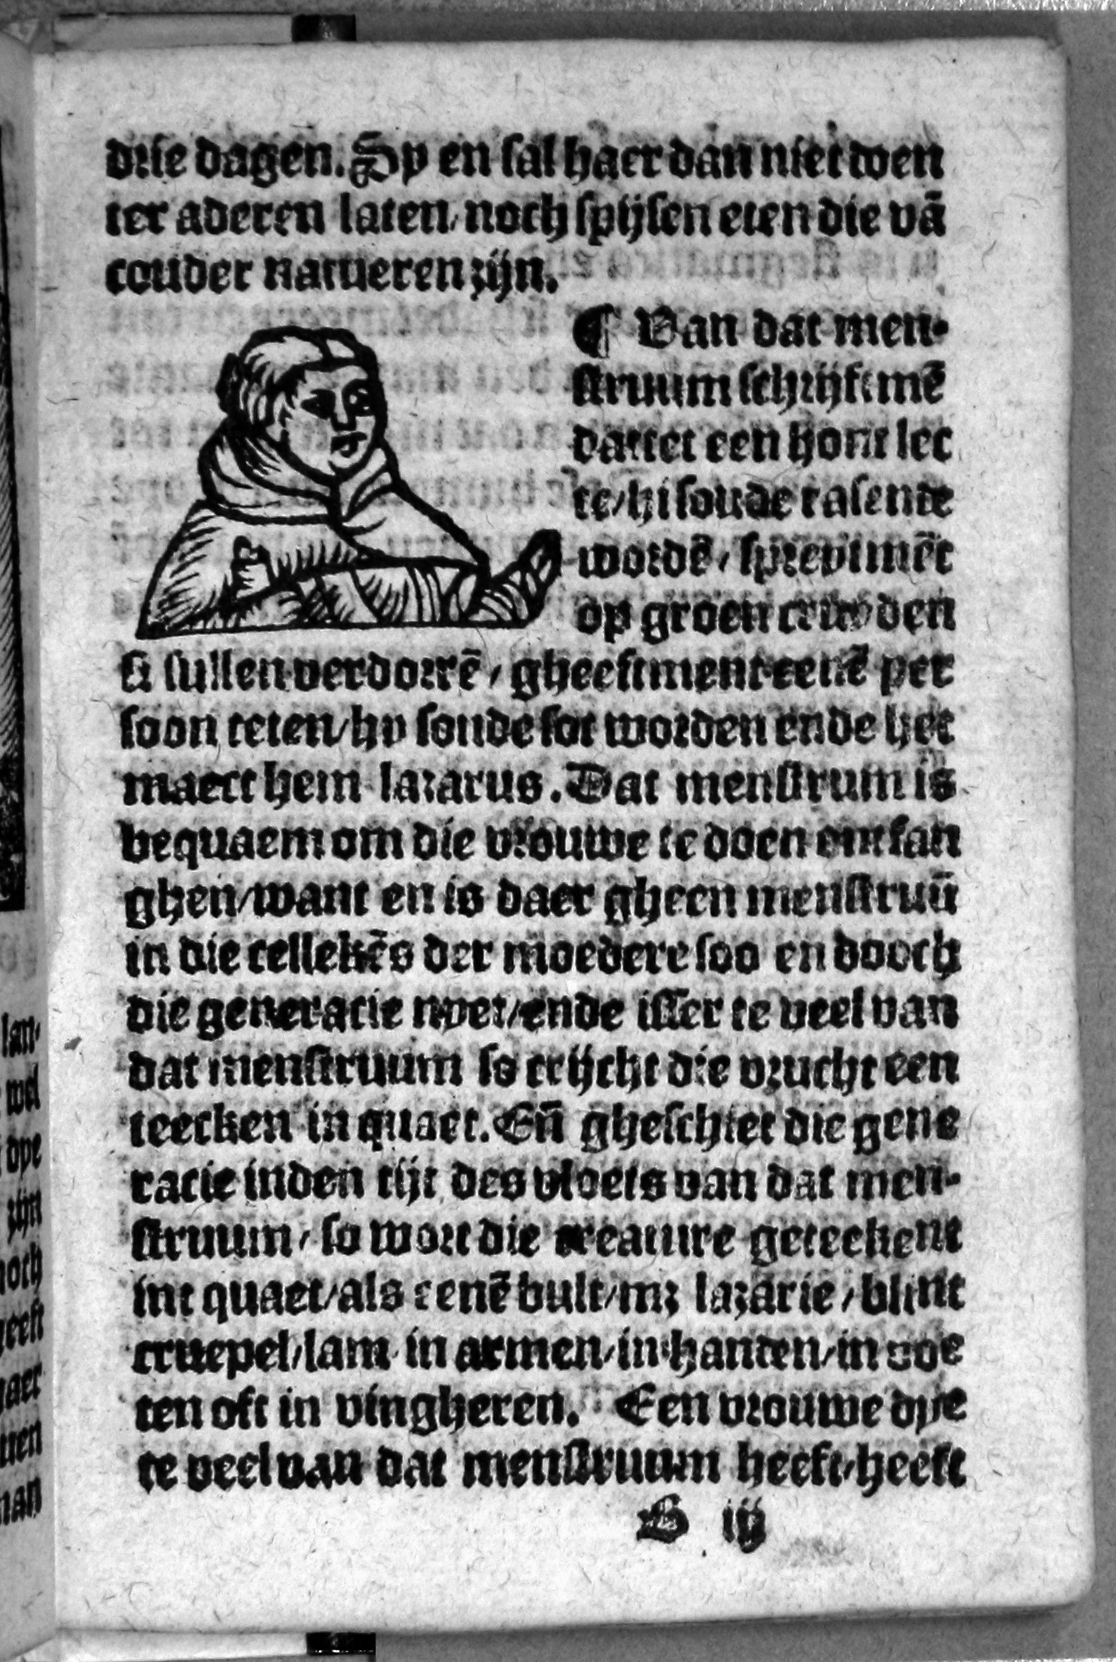 drie dagen. Sy en sal haer dan niet wen
ter aderen laten/noch spijsen eten die vā
couder natueren zijn.
¶ Van dat men-
struum schrijft mē
dattet een hont lec
te/hi soude rasende
wordē/spreyt mēt
op groen cruyden
si sullen verdorrē/gheeft ment eenē per
soon teten/hy soude sot worden ende het
maect hem lazarus. Dat menstrum is
bequaem om die vrouwe te doen ontfan
ghen/want en is daer gheen menstruū
in die cellekēs der moedere soo en dooch
die generacie nyet/ende isser te veel van
dat menstruum so crijcht die vrucht een
teecken in quaet. Eñ gheschiet die gene
racie inden tijt des vloets van dat men-
struum/so wort die creature geteekent
int quaet/als eenē bult/mz lazarie/blint
cruepel/lam in armen/in handen/in voe
ten oft in vingheren. Een vrouwe dye
te veel van dat menstruum heeft/heeft
B iij
lan/
wel
dye
zijn
noch
geeft
haer
man